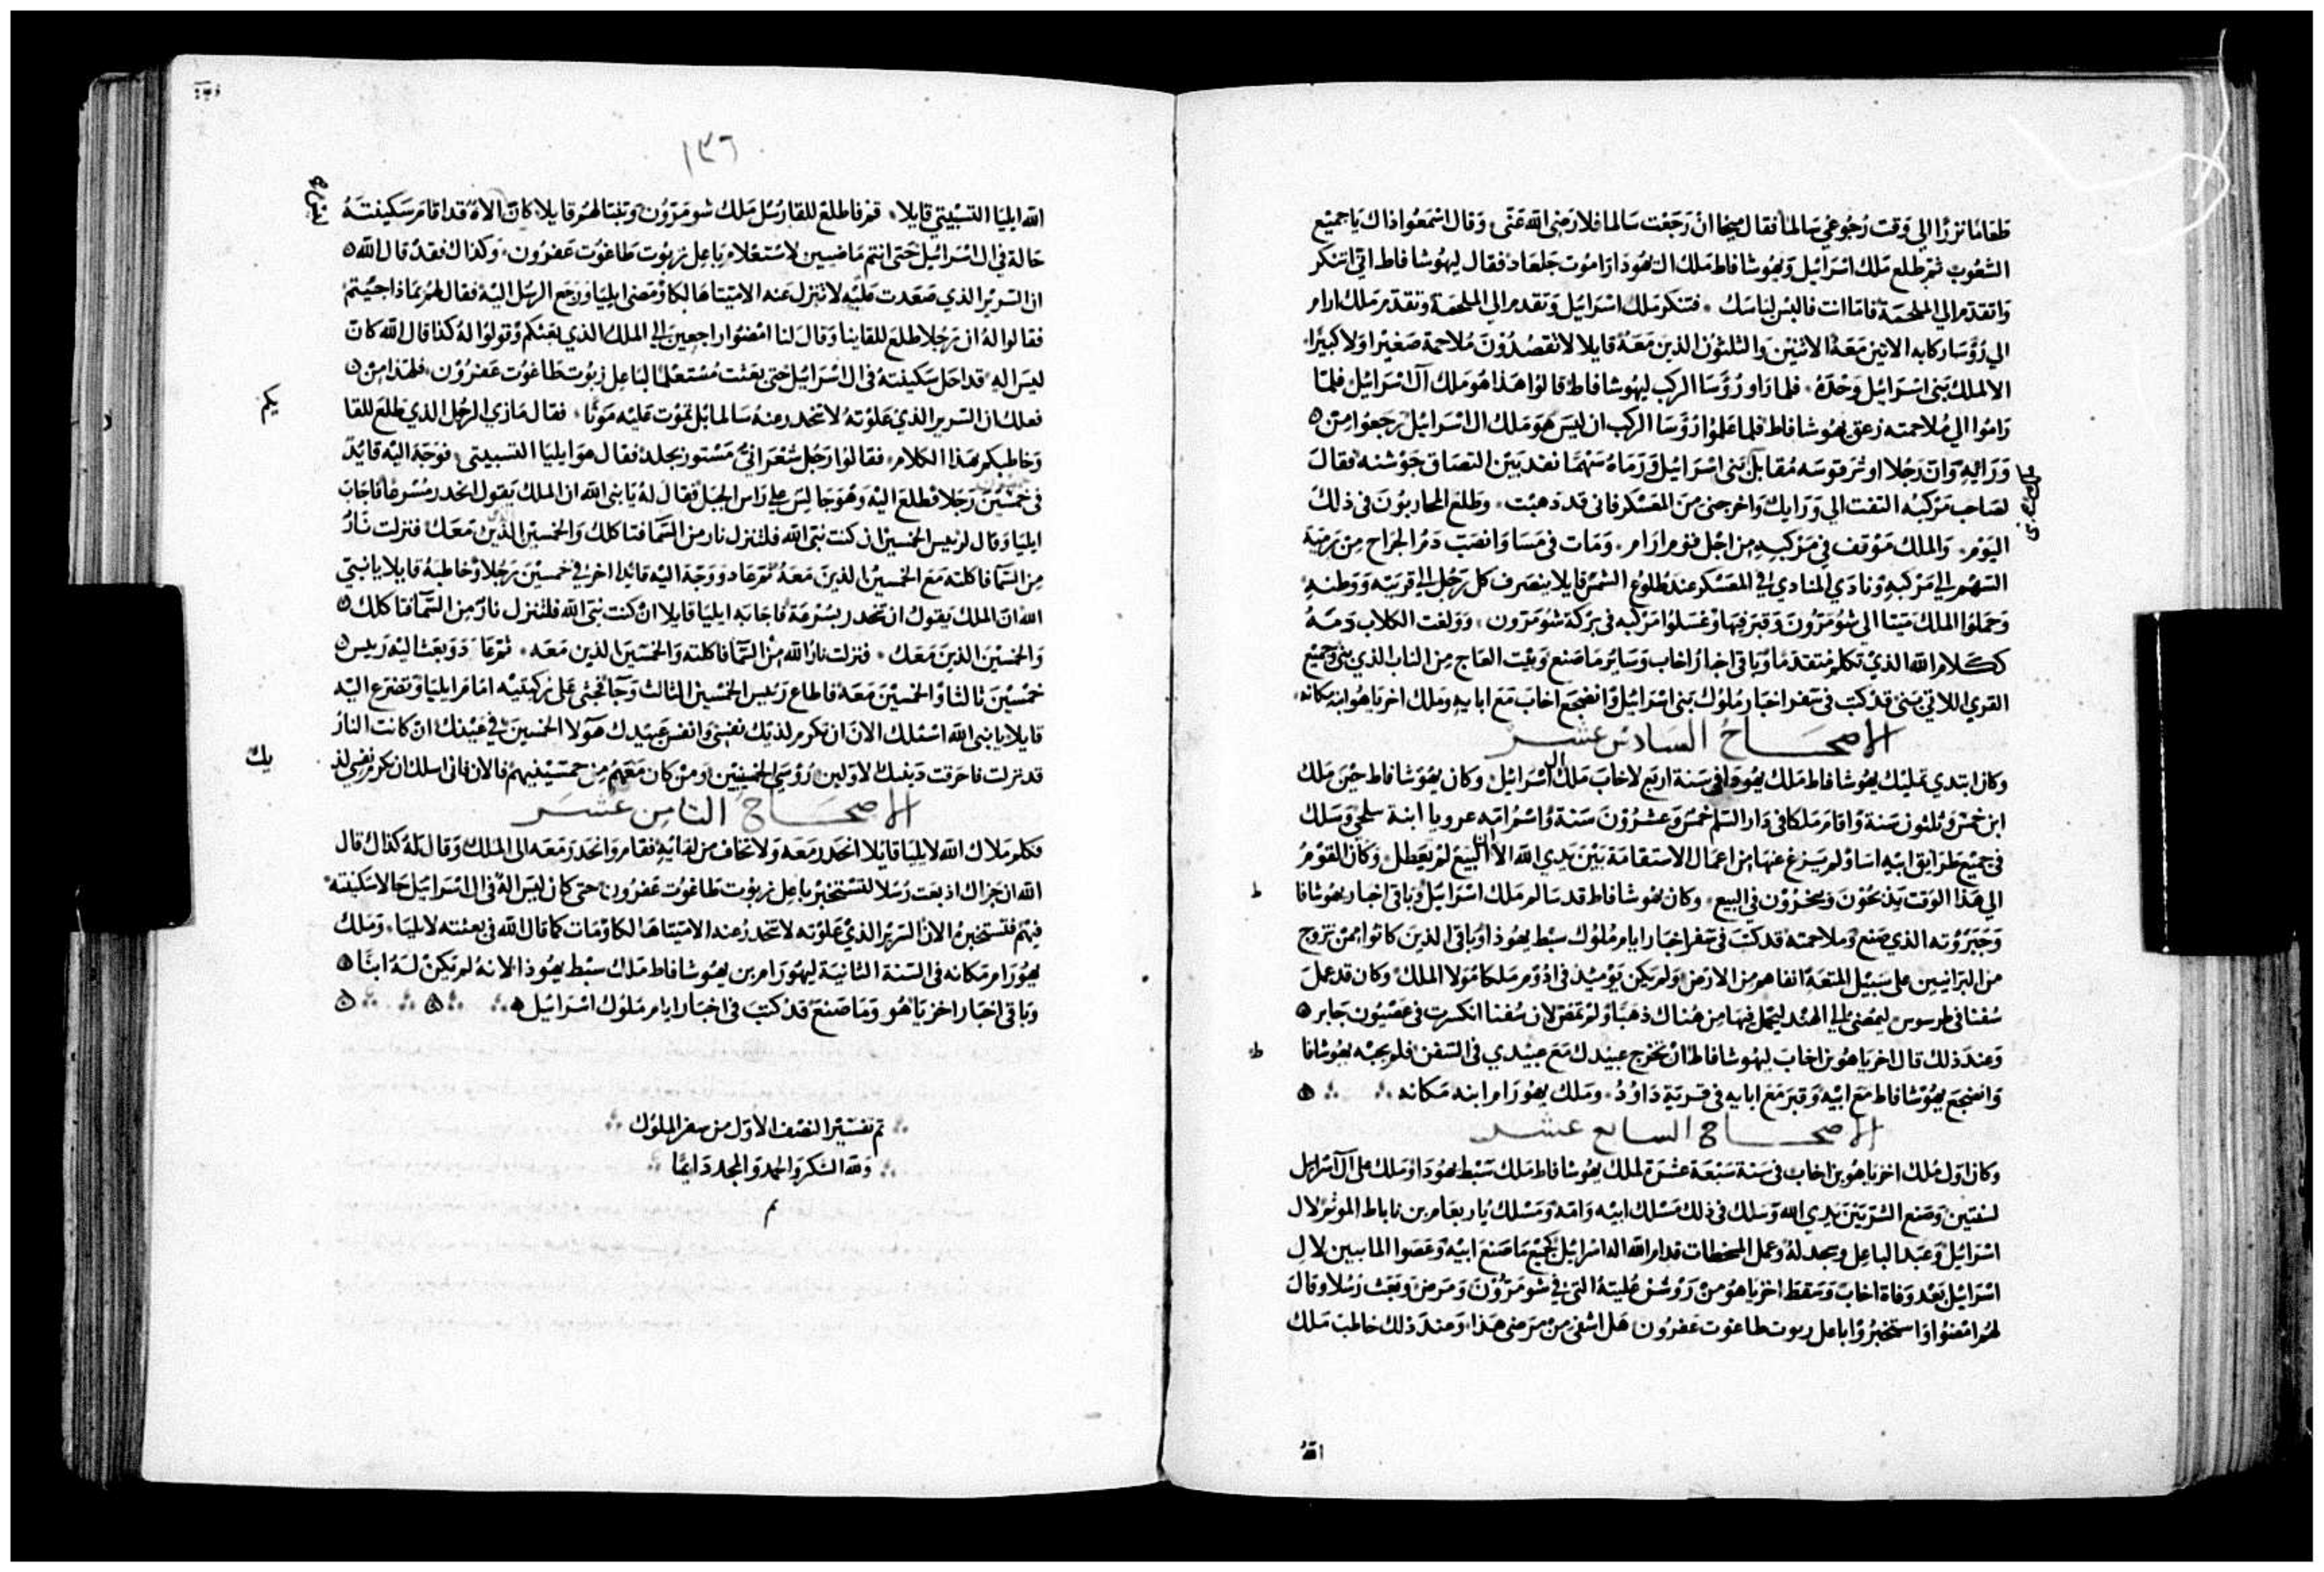 طعامًا نزرًا الى وقت رجوعي سالمًا فقال ميخا ان رجعت سالما فلا رضى الله عنّى وقال اسمعوا ذاك يا جميع
الشعوب ثم طلع ملك اسرائيل ويهوشافاط ملك ال يهودا الى راموت جلعاد فقال ليهوشافاط اني اتنكر
واتقدم الي الملحمة فاما انت فالبس لباسك فتنكر ملك اسرائيل وتقدم الي الملحمة وتقدم ملك ارام
الي رؤسا ركابه الاثنين معه الاثنين والثلثون الذين معه قايلا لا تقصدون ملاحمة صغيرا ولا كبيرا
الا ملك بني اسرائيل وحده فلما راو رؤسا الركب ليهوشافاط قالوا هذا هو ملك آل اسرائيل فلمّا
راموا الي ملاحمته زعق يهوشافاط فلما علموا رؤسا الركب ان ليس هو ملك ال اسرائيل رجعوا من
ورائه وان رجلا اوتر قوسه مقابل بني اسرائيل ورماه سهمًا نفد بين التصاق جوشنه فقال
لصاحب مركبه التفت الي ورايك واخرجني من المعسكر فاني قد دهيت وطلع المحاربون في ذلك
اليوم والملك موقف في مركبه من اجل قوم ارام ومات في مسا وانصب دم الجراح من رمية
السهم الي مركبه ونادي المنادي في المعسكر عند طلوع الشمس قايلا ينصرف كل رجل الي قريته ووطنه
وحملوا الملك ميتا الي شومرون وقبر فيها وغسلوا مركبه في بركة شومرون وولغت الكلاب دمه
ككلام الله الذي تكلم متقدما وباقي اخبار اخاب وساير ما صنع وبيت العاج من الناب الذي بني وجميع
القري اللاتي بني قد كتب في سفر اخبار ملوك بني اسرائيل وانضجع اخاب مع ابايه وملك اخرياهو ابنه مكانه
الاصحاح السادس عشر
وكان ابتدي تمليك يهوشافاط ملك يهودا في سنة اربع لاخاب ملك ال اسرائيل وكان يهوشافاط حين ملك
ابن خمس وثلثون سنة واقام ملكا في دار السلم خمس وعشرون سنة واسم امه عروبا ابنة سلحي وسلك
في جميع طرايق ابيه اسا ولم يسزغ عنها من اعمال الاستقامة بين يدي الله الا ان البيع لم يعطل وكان القوم
الي هذا الوقت يذبحون ويبخرون في البيع وكان يهوشافاط قد سالم ملك اسرائيل وباقي اخبار يهوشافا ط
وجبروته الذي صنع وملاحمته قد كتب في سفر اخبار ايام ملوك سبط يهوذا وباقي الذين كانوا ممن تزوج
من البرانيين على سبيل المتعة انفاهم من الارض ولم يكن يوميذ في ادوم ملكا مولا الملك وكان قد عمل
سفنا في طرسوس ليمضي الي الهند ليحمل فيها من هناك ذهبا ولم تمض لان سفنا انكسرت في عصيون جابر
وعند ذلك قال اخرياهو بن اخاب ليهوشافاط ان تخرج عبيدك مع عبيدي في السفن فلم يجبه يهوشافا ط
وانضجع يهوشافاط مع ابيه وقبر مع ابايه في قرية داوُد وملك يهورام ابنه مكانه
الاصحاح السابع عشر
وكان اول ملك اخرياهو بن اخاب في سنة سبعة عشرة لملك يهوشافاط ملك سبط يهودا وملك على آل اسرايل
لسنتين وصنع الشر بين يدي الله وسلك في ذلك مسلك ابيه وامه ومسلك ياربعام بن ناباط الموثم لال
اسرائيل وعبد الباعل وسجد له وعمل المسخطات قدام الله اله اسرائيل كجميع ما صنع ابيه وعصوا المابيين لال
اسرائيل بعد وفاة اخاب وسقط اخرياهو من روشن عليته التي في شومرون ومرض وبعث رسلا وقال
لهم امضوا واستخبروا باعل زبوت طاغوت عفرون هل اشفى من مرضى هذا وعند ذلك خاطب ملك
الله
١٣٦
الله ايليا التسبيتي قايلا قم فاطلع للقا رسل ملك شومرون وتبتا لهم قايلا كان الاه قد اقام سكينته
حالة في ال اسرائيل حتى انتم ماضيين لاستعلام باعل زبوت طاغوت عفرون وكذاك فقد قال الله
ان السرير الذي صعدت عليه لا تنزل عنه الا ميتا هالكا ومضى ايليا ورجع الرسل اليه فقال لهم بماذا جيتم
فقالوا له ان رجلا طلع للقاينا وقال لنا امضوا راجعين الي الملك الذي بعثكم وقولوا له كذا قال الله كان
ليس اله قد احل سكينته في ال اسرائيل حتى بعثت مستعلما لباعل زبوت طاغوت عفرون فلهذا من
فعلك ان السرير الذي علوته لا تنحدر منه سالما بل تموت عليه موتا فقال ما زي الرجل الذي طلع للقا يكم
وخاطبكم بهذا الكلام فقالوا رجل شعراني مستور بجلد فقال هو ايليا التسبيتي فوجه اليه قايد
في خمسين رجلا فطلع اليه وهو جالس على راس الجبل فقال له يا نبى الله ان الملك يقول انحدر مسرعا فاجاب
ايليا وقال لرئيس الخمسين ان كنت نبي الله فلتنزل نار من السما فتاكلك والخمسين الذين معك فنزلت نار
من السما فاكلته مع الخمسين الذين معه ثم عاد ووجه اليه قايدا اخر في خمسين رجلا وخاطبه قايلا يا نبي
الله ان الملك يقول ان تنحدر بسرعة فاجابه ايليا قايلا ان كنت نبى الله فلتنزل نار من السما فتاكلك
والخمسين الذين معك فنزلت نار الله من السما فاكلته والخمسين الذين معه ثم عاد وبعث اليه رييس
خمسين ثالثا والخمسين معه فاطاع رئيس الخمسين الثالث وجا فجثى على ركبتيه امام ايليا وتضرع اليه
قايلا يا نبى الله اسئلك الان ان تكرم لديك نفسي وانفس عبيدك هولا الخمسين في عينك ان كانت النار
قد نزلت فاحرقت دينيك الاولين رؤسي الخمسين ومن كان معهم من خمسينيهم فالان فاني اسلك ان تكرم نفسي لد يك
الاصحاح الثامن عشر
فكلم ملاك الله لايليا قايلا انحدر معه ولا تخاف من لقايه فقام وانحدر معه الى الملك وقال له كذاك قال
الله ان جزاك اذ بعثت رسلا لتستخبر باعل زبوت طاغوت عفرون حتى كان ليس اله في ال اسرائيل حالا سكينته
فيهم فتستخبره الان السرير الذي علوته لا تنحدر عنه الا ميتا هالكا ومات كما قال الله في بعثته لايليا وملك
يهورام مكانه في السنة الثانية ليهورام بن يهوشافاط ملك سبط يهوذا لانه لم يكن له ابنًا
وباقي اخبار اخزياهو وما صنع قد كتب في اخبار ايام ملوك اسرائيل
تم تفسير النصف الاول من سفر الملوك
ولله الشكر والحمد والمجد دايمًا
م